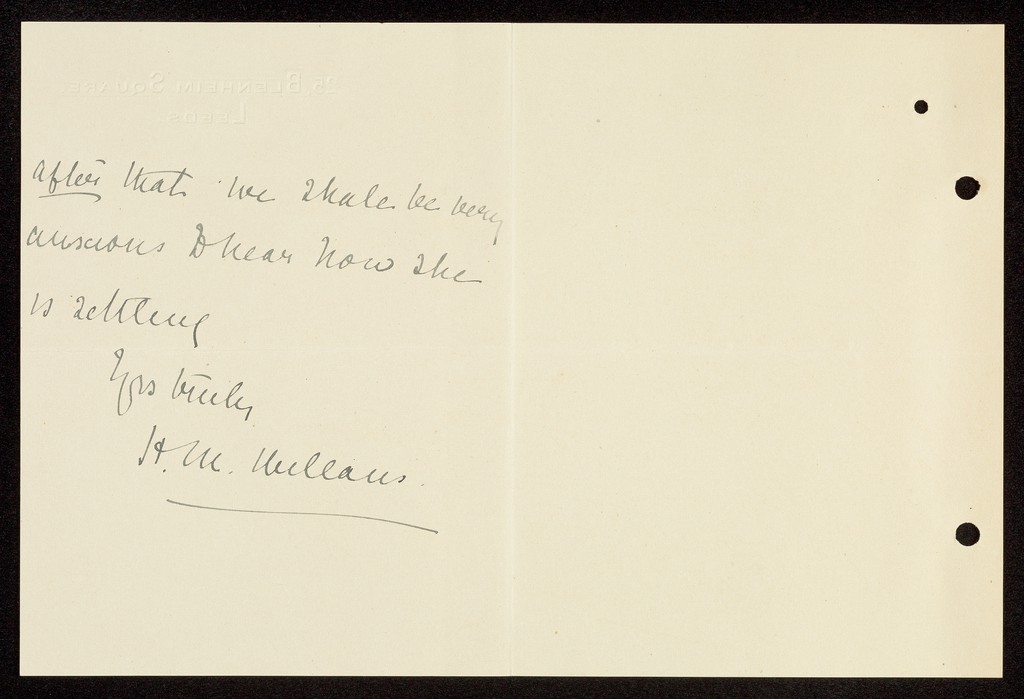 25 BLENHEIM SQUARE
LEEDS
after that we shall be very
anxious to hear how she
is settling
Yrs truly
H. M. Willans.